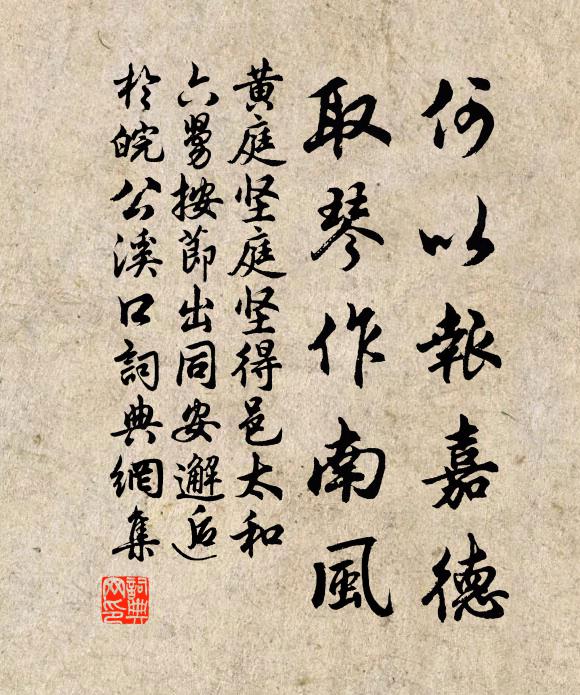 何以報嘉德
取琴作南風
黄庭坚庭坚得邑太和
六舅按節出同安邂逅
於皖公溪口詞典網集